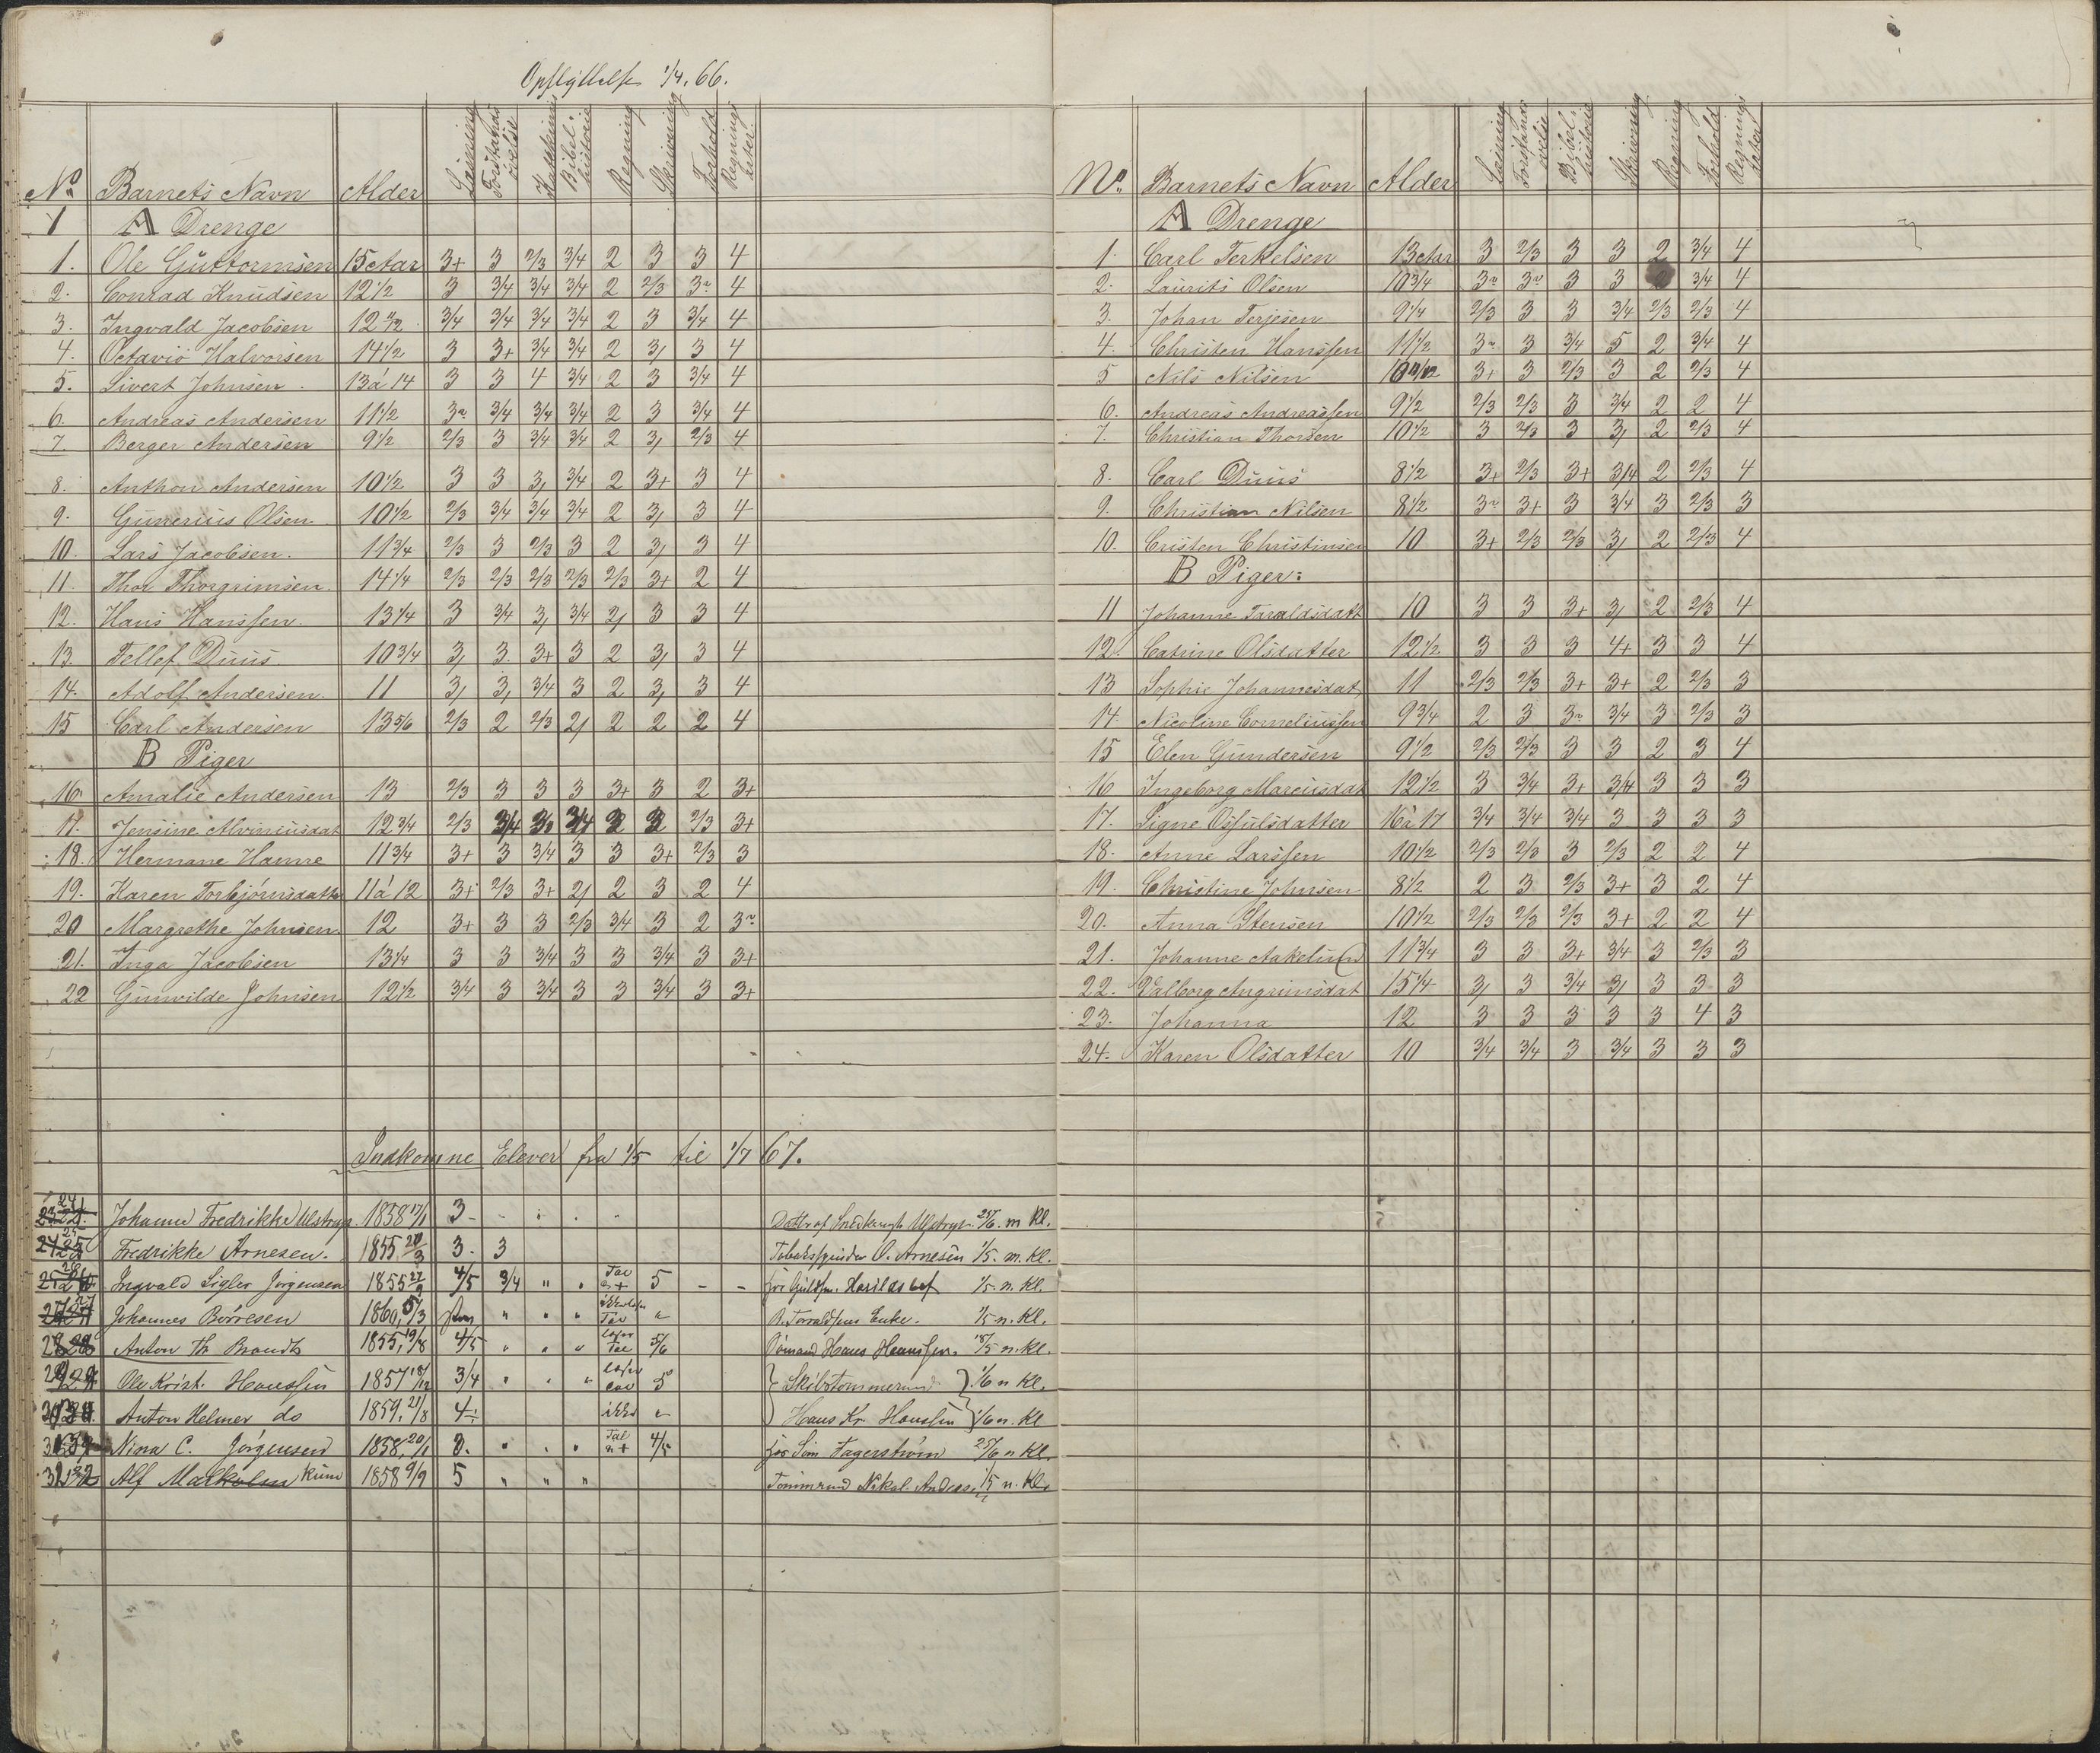 Opflyttelse 1/4. 66.
No Barnets Navn Alder Læsning Forstandsøvelse Katekismus Bibelhistorie Regning Skrivning Forhold Regningsarter
1 A Drenge
1. Ole Guttormsen 15 Aar 3+ 3 2/3 3/4 2 3 3 4
2. Conrad Knudsen 12 1/2 3 3/4 3/4 3/4 2 2/3 3÷ 4
3. Ingvald Jacobsen 3/4 3/4 3/4 3/4 2 3 3/4 4
4. Octavio Halvorsen 14 1/2 3 3+ 3/4 3/4 2 3, 3 4
5. Sivert Johnsen 13 á 14 3 3 4 3/4 2 3 3/4 4
6. Andreas Andersen 11 1/2 3÷ 3/4 3/4 3/4 2 3 3/4 4
7. Berger Andersen 9 1/2 2/3 3 3/4 3/4 2 3, 2/3 4
8. Anthon Andersen 10 1/2 3 3 3, 3/4 2 3+ 3 4
9. Gunerius Olsen 10 1/2 2/3 3/4 3/4 3/4 2 3, 3 4
10. Lars Jacobsen. 11 3/4 2/3 3 2/3 3 2 3, 3 4
11. Thor Thorgrimsen. 14 1/4 2/3 2/3 2/3 2/3 2/3 3+ 2 4
12. Hans Hanssen. 13 1/4 3 3/4 3, 3/4 2, 3 3 4
13. Tellef Duus 10 3/4 3, 3. 3+ 3 2 3, 3 4
14. Adolf Andersen. 11 3, 3, 3/4 3 2 3, 3 4
15 Carl Andersen 13 5/6 2/3 2 2/3 2, 2 2 2 4
B Piger
16. Amalie Andersen 13 2/3 3 3 3 3+ 3 2 3+
17. Jensine Alviniusdat 12 3/4 2/3 3/4 3/4 2/3 3+
18. Hermane Hanne 11 3/4 3+ 3 3/4 3 3 3+ 2/3 3
19. Karen Torbjörnsdatter 11 á 12 3+ 2/3 3+ 2, 2 3 2 4
20 Margrethe Johnsen. 12 3+ 3 3 2/3 3/4 3 2 3÷
21. Inga Jacobsen 13 1/4 3 3 3/4 3 3 3/4 3 3+
22 Gunvilde Johnsen 12 1/2 3/4 3 3/4 3 3 3/4 3 3+
Indkomne Elever fra 1/5 til 1/7 67.
24 Johanne Fredrikke Ulstrup 1858 17/1 3 Dattr af Snedkersv Ulstrup. 25/6. m Kl.
25 Fredrikke Arnesen. 1855 20/3 3. 3 Tobaksspinder O. Arnesen 1/5. m. Kl.
26 Ingvald Sigler Jørgensen 1855 4/5 3/4 " Tal + 5 - - 1/5. n. Kl.
27 Johannes Børresen 1860, 5/3 " " " Tal " Enke. 1/5 n. Kl.
28 Anton Th Brandt 1855, 19/8 4/5 " " " læser Tal 5/6 Hans Hanssen. 18/5 n. Kl.
29 Ole Krist. Hanssen 1857 18/12 3/4 " " " læser 5 Skibstømmermd 1/6 n Kl.
30 Anton Helmer do 1859, 21/8 4÷ ikke " Hans Kr. Hanssen 1/6 n. Kl
31 Nina C. Jørgensen 1858, 20/1 3. " " " Tal + 4/5 Sim Fagerstrøm 25/6 n Kl.
32 Alf Malkolm Kum 1858 9/9 5 " " " Tømmrmd Nikol. Anders. 1/5 n. Kl.
No. Barnets Navn Alder Læsning Forstandsøvelse Bibelhistorie Skrivning Regning Forhold Regningsarter
A Drenge
1. Carl Terkelsen 13 Aar 3 2/3 3 3 2 3/4 4
2. Laurits Olsen 10 3/4 3÷ 3÷ 3 3 2 3/4 4
3. Johan Terjesen 9 1/4 2/3 3 3 3/4 2/3 2/3 4
4. Christen Hanssen 11 1/2 3÷ 3 3/4 5 2 3/4 4
5 Nils Nilsen 10 11/12 3+ 3 2/3 3 2 2/3 4
6. Andreas Andreassen 9 1/2 2/3 2/3 3 3/4 2 2 4
7. Christian Thorsen 10 1/2 3 2/3 3 3, 2 2/3 4
8. Carl Duus 8 1/2 3+ 2/3 3+ 3/4 2 2/3 4
9. Christian Nilsen 8 1/2 3÷ 3+ 3 3/4 3 2/3 3
10. Cristen Christinsen 10 3+ 2/3 2/3 3, 2 2/3 4
B Piger:
11 Johanne Taraldsdatt 10 3 3 3+ 3, 2 2/3 4
12. Catrine Olsdatter 12 1/2 3 3 3 4+ 3 3 4
13 Sophie Johannesdat 11 2/3 2/3 3+ 3+ 2 2/3 3
14. Nicoline Corneliussen 9 3/4 2 3 3÷ 3/4 3 2/3 3
15 Elen Gundersen 9 1/2 2/3 2/3 3 3 2 3 4
16 Ingeborg Marcusdat 12 1/2 3 3/4 3+ 3/4 3 3 3
17. Signe Ossulsdatter 16 à 17 3/4 3/4 3/4 3 3 3 3
18. Anne Larssen 10 1/2 2/3 2/3 3 2/3 2 2 4
19. Christine Johnsen 8 1/2 2 3 2/3 3+ 3 2 4
20. Anna Stensen 10 1/2 2/3 2/3 2/3 3+ 2 2 4
21. Johanne Aakelund 11 3/4 3 3 3+ 3/4 3 2/3 3
22. Valborg Angrimsdat 15 1/4 3, 3 3/4 3, 3 3 3
23. Johanna 12 3 3 3 3 3 4 3
24. Karen Olsdatter 10 3/4 3/4 3 3/4 3 3 3